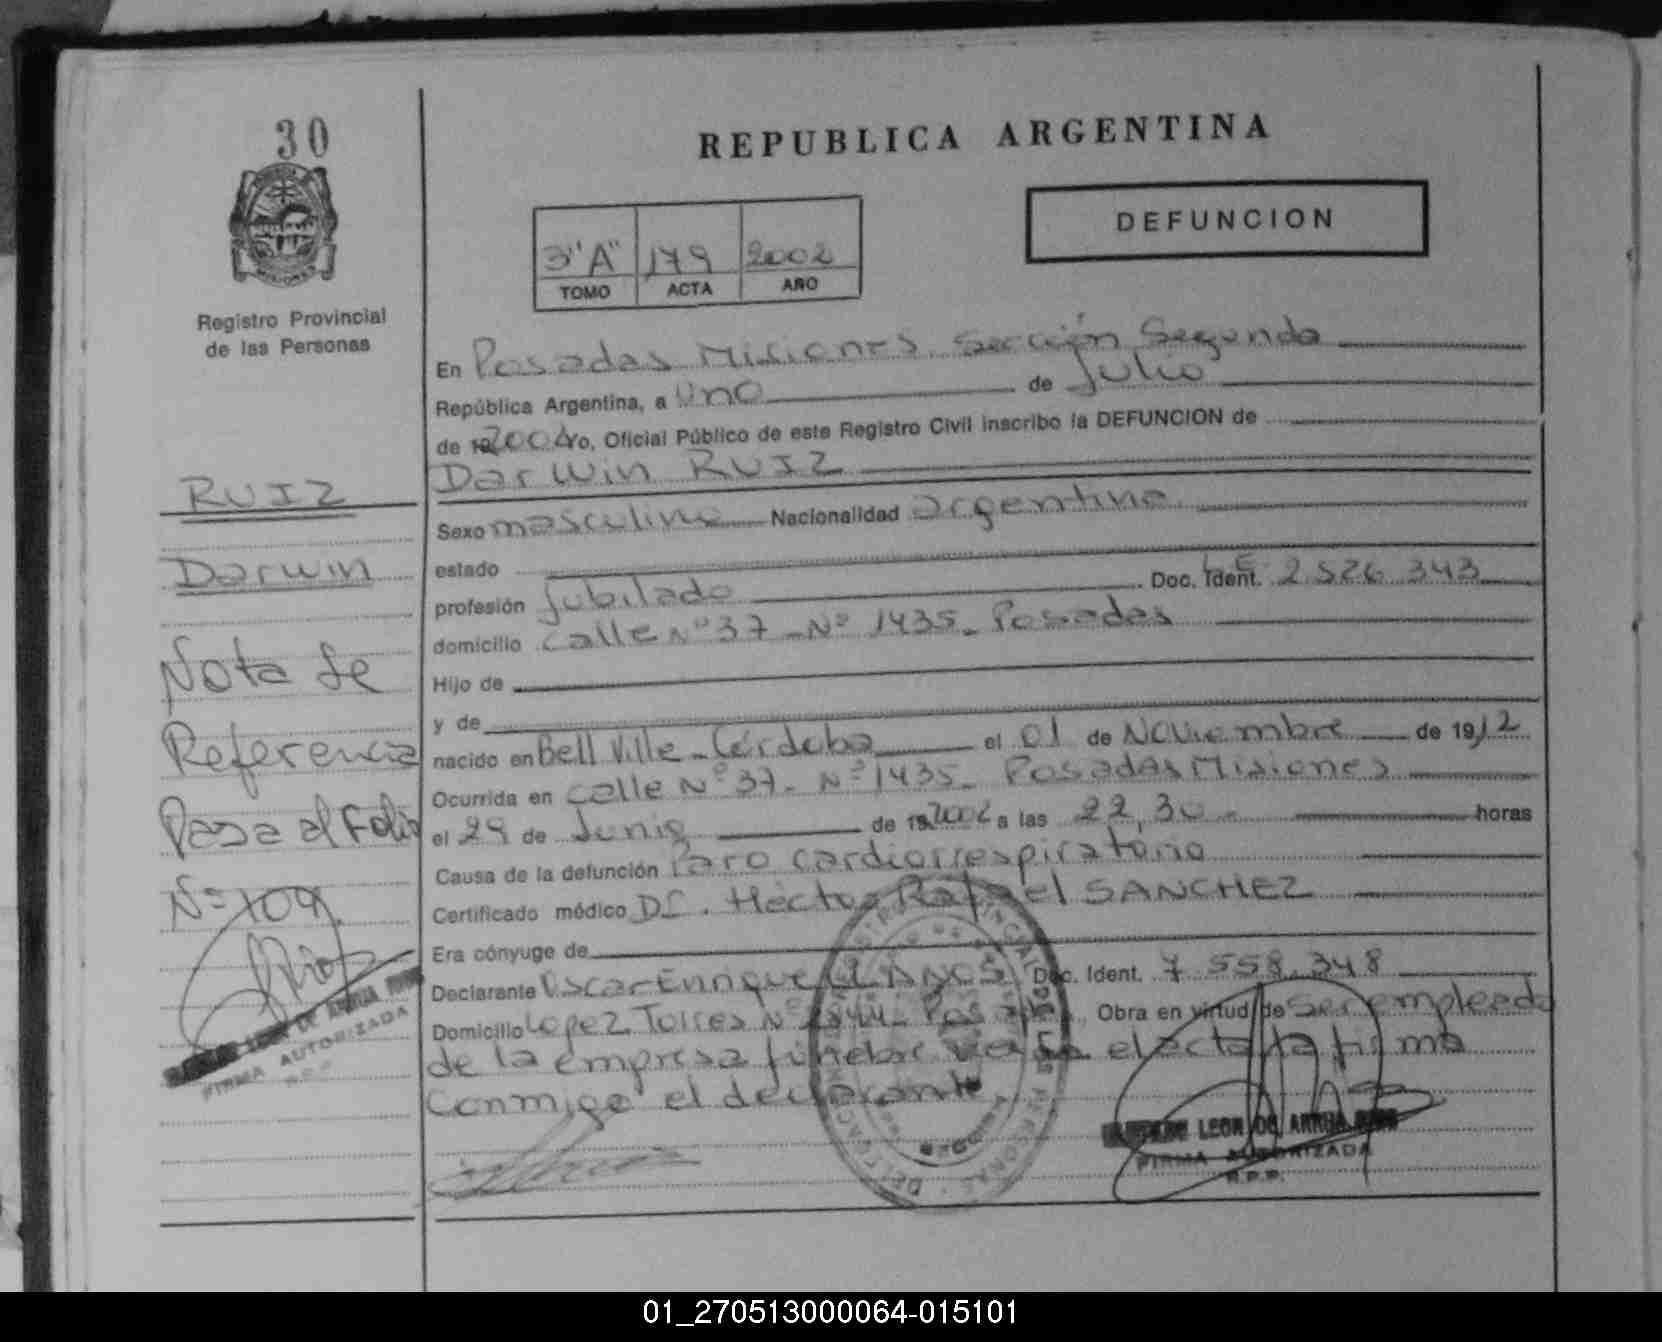 30
REPUBLICA ARGENTINA
DEFUNCION
3"A" 179 2002
TOMO ACTA AÑO
Registro Provincial
de las Personas
En Posadas Misiones Sección Segunda
República Argentina, a uno de Julio
de Yo, Oficial Público de este Registro Civil inscribo la DEFUNCION de
Darwin RUIZ
Sexo masculino Nacionalidad argentino
estado
profesión Jubilado Doc. Ident. LE 2 526 343
domicilio calle Nº 37 - Nº 1435 - Posadas
Hijo de
y de
nacido en Bell Ville - Córdoba el 01 de Noviembre de 1912
Ocurrida en calle Nº 37 - Nº 1435 - Posadas Misiones
el 29 de Junio de 2002 a las 22,30 - horas
Causa de la defunción Paro cardiorrespiratorio
Certificado médico Dr. Héctor Rafael SANCHEZ
Era cónyuge de
Declarante Oscar Enrique LLANOS Doc. Ident. 7 558 348
Domicilio Lopez Torres Nº Posadas Obra en virtud de ser empleado
de la empresa fúnebre el acta la firma
conmigo el declarante
RUIZ
Darwin
Nota de
Referencia
Pasa al Folio
Nº 109
LEON DE ARRUA
FIRMA AUTORIZADA
R.P.P.
LEON DE ARRUA
FIRMA AUTORIZADA
R.P.P.
01_270513000064-015101